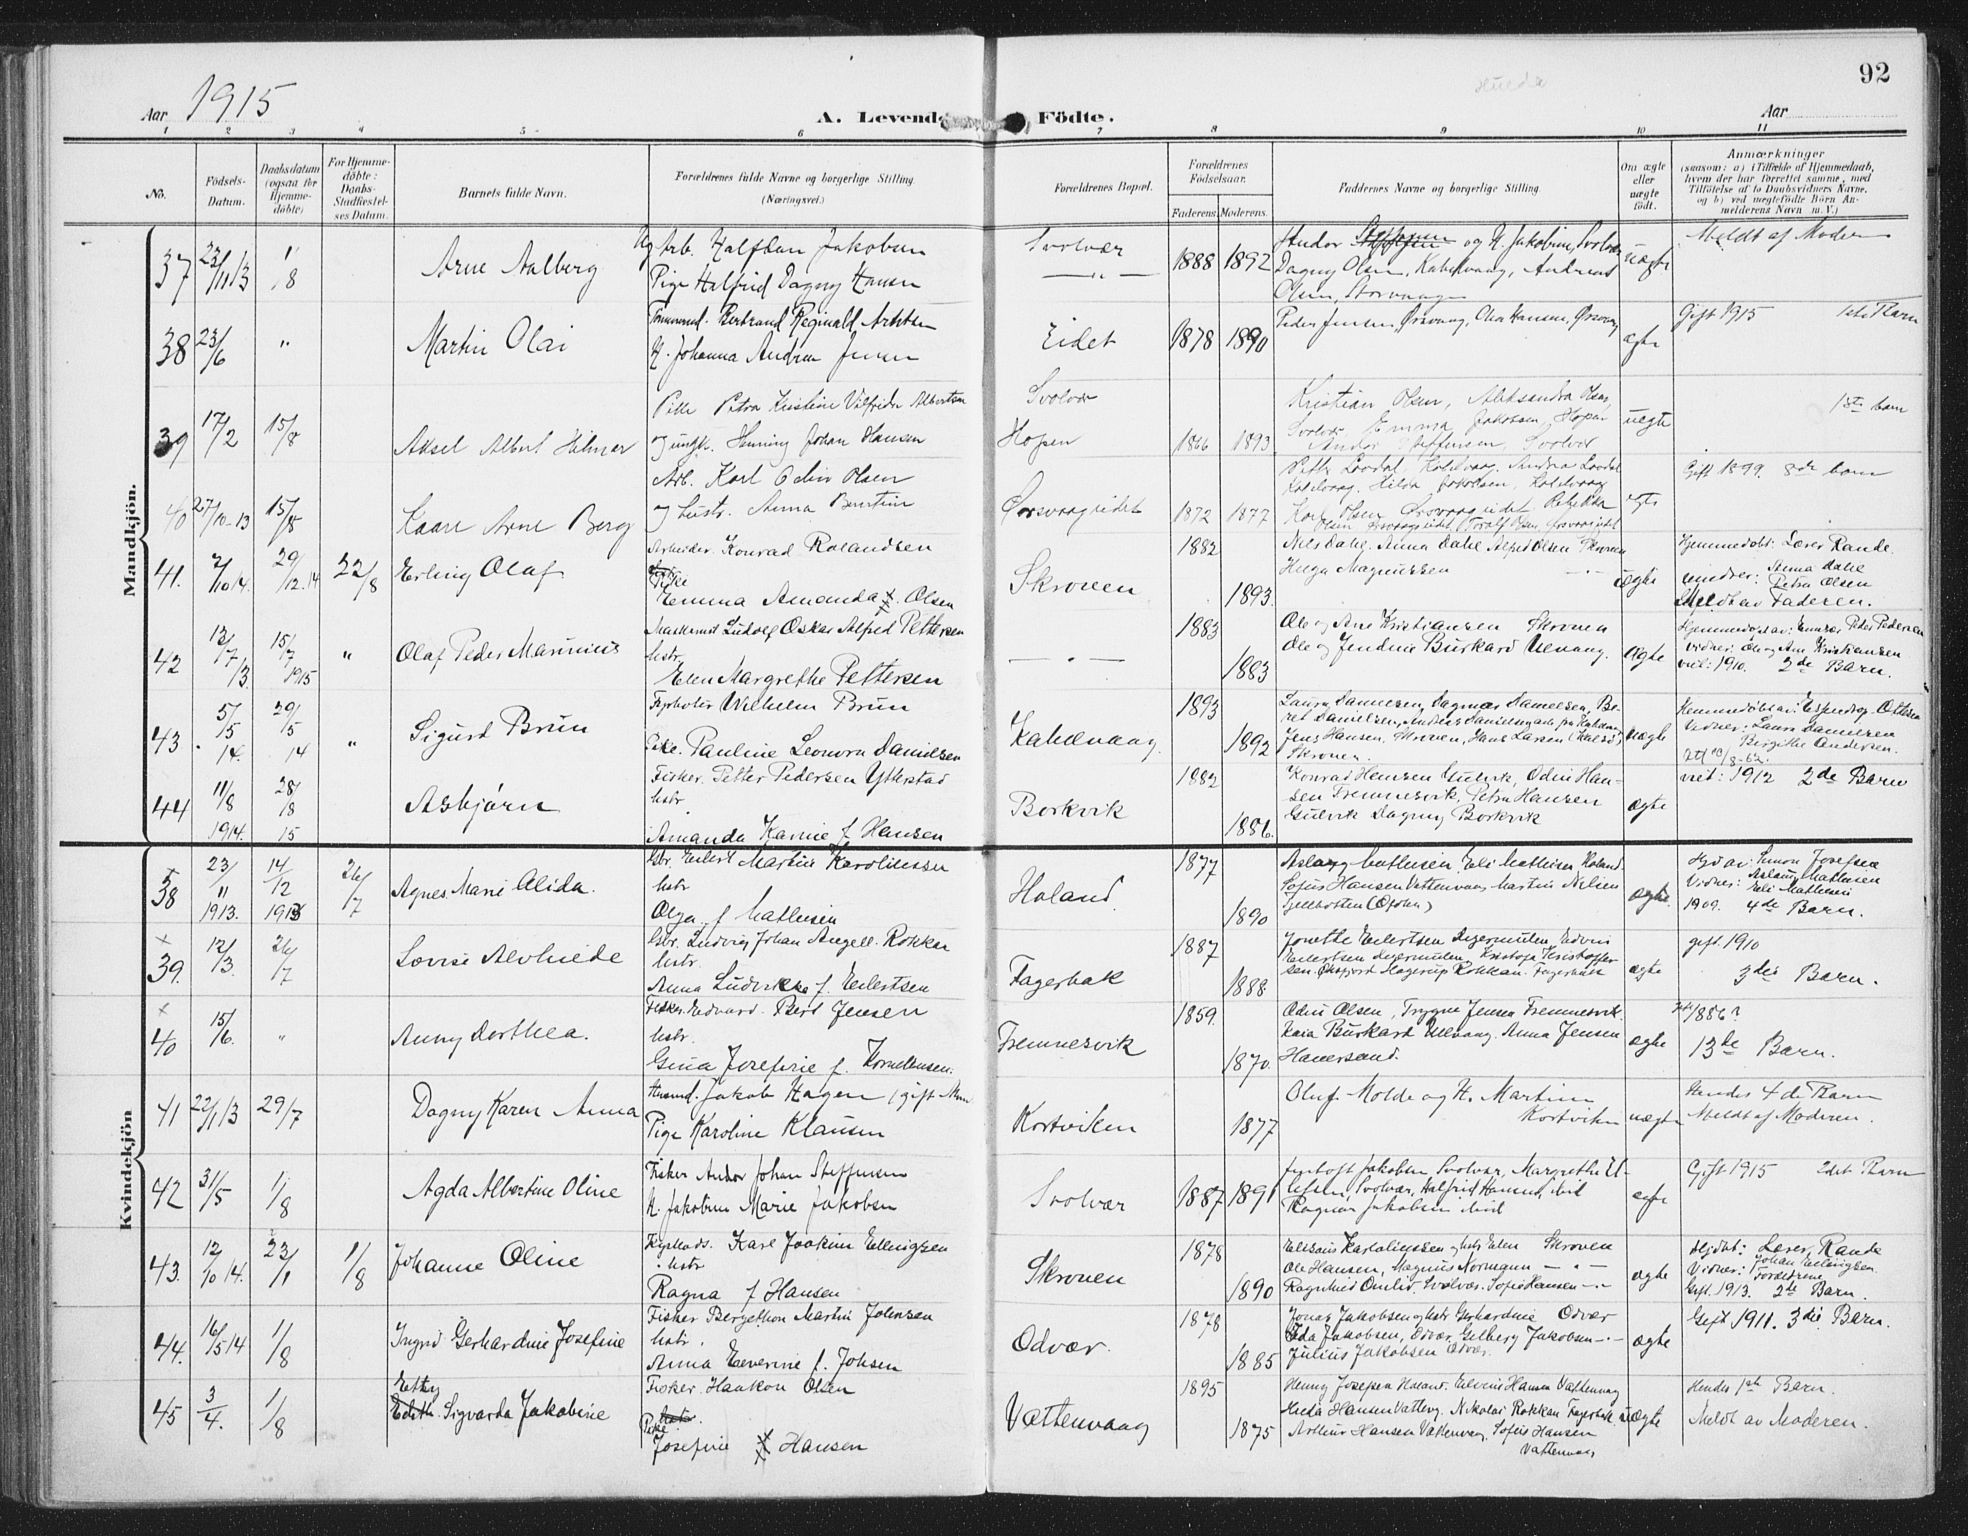 Hulda
92
Aar 1915
A. Levende Födte.
Aar
1 2 3 4 5 6 7 8 9 10 11
No.
Födsels-
Datum.
Daabsdatum
(ogsaa for
Hjemme-
döbte)
For Hjemme-
döbte:
Daabs-
Stadfæstel-
ses Datum.
Barnets fulde Navn.
Forældrenes fulde Navne og borgerlige Stilling.
(Næringsvei.)
Forældrenes Bopæl.
Forældrenes
Födselsaar.
Faderens. Moderens.
Faddernes Navne og borgerlige Stilling.
Om ægte
eller
uægte
födt.
Anmærkninger
(saasom: a) i Tilfælde af Hjemmedaab,
hvem der har forrettet samme, med
Tilföielse af to Daabsvidners Navne,
og b) ved uægtefödte Börn An-
melderens Navn m. V.)
Mandkjön.
37 23/11 13 1/8 Arne Aalberg
Ug. arb. Halfdan Jakobsen
Pige Halfrid Dagny Hansen
Svolvær
— " —
1888 1892
Andor Steffensen og H. Jakobsen, Svolvær
Dagny Olsen, Kabelvaag, Andreas
Olsen, Storvaagen
uægte
Meldt af Moderen
38 23/6 " Martin Olai
Tømmermd. Bertrand Reginald Arntsen
H. Johanna Andrea Jensen
Eidet
1878 1890
Peder Jensen, Ørsvaag, Olea Hansen, Ørsvaag
ægte
Gift 1915 1ste Barn
39 17/2 15/8 Aksel Albert Hilmar
Pike Petra Kristine Vilfride Albertsen
og ungk. Henning Johan Hansen
Svolvær
Hopen
1866 1893
Kristian Olsen, Aleksandra Olsen,
Svolvær Emma Jakobsen, Hopen
Andor Steffensen, Svolvær
uegte
1ste barn
40 27/10-13 15/8 Kaare Arne Berg
Arb. Karl Odin Olsen
og hustr. Anna Berntine
Ørsvaageidet
1872 1877
Karl Olsen Ørsvaageidet Rebekka
Olsen Ørsvaageidet, Toralf Olsen, Ørsvaageidet
egte
Gift 1899. 8de barn
41. 2/10 14. 29/12.14 22/8 Erling Olaf
Arbeider. Konrad Rolandsen
Pike
Emma Amanda Olsen
Skroven
1882
1893.
Nils Dahl. Anna Dahl Alfred Olsen Skroven
Helga Magnussen — " —
uægte
Hjemmedøbt: Lærer Rande.
vidner: Anna Dahl
Petra Olsen
Meldt av Faderen.
42 13/7 13. 15/7 1915 " Olaf Peder Maurinius
Maskinist Ludvig Oskar Alfred Pettersen
hstr.
Elen Margrethe Pettersen
— " —
1883
1883
Ole og Ane Kristiansen Skroven
Ole og Jendine Burkard Ulvaag.
Ægte
Hjemmedøbt av: Peder Pedersen
vidner: Ole og Ane Kristiansen
viet: 1910. 2de Barn.
43. 5/5 14. 29/5 14 " Sigurd Brun
Fyrbøter Wilhelm Brun
Pike. Pauline Leonora Danielsen
Kabelvaag.
1893
1892
Laura Danielsen, Dagmar Danielsen, Be-
ret Danielsen, Andreas Danielsen
Jens Hansen, Skroven, Hans Larsen
Skroven.
uægte
Hjemmedøbt av: Ottesen
Vidner: Laura Danielsen
Birgithe Andersen.
44 11/8 1914. 28/8 15 Asbjørn
Fisker. Petter Pedersen Ytterstad
hstr.
Amanda Kamie f. Hansen
Borkvik
1882
1886.
Konrad Hansen Gulvik, Odin Han-
sen Fremnesvik, Petra Hansen
Gulvik Dagny Borkvik
ægte
viet: 1912 2de Barn
Kvindekjön
38 23/11 1913. 14/12 1913 26/7 Agnes Marie Alida.
Gbr. Eilert Martin Karoliussen
hstr
Olga f. Mathisen
Holand
1877
1890
Aslaug Mathisen, Eli Mathisen Holand.
Sofus Hansen Vattenvaag, Martin Nilsen
ægte
Hjd av: Simon Josefsen
Vidner: Aslaug Mathisen
Eli Mathisen
1909. 4de Barn.
39. 12/3. 26/7 Lovise Alvhilde
Gbr. Ludvig Johan Angell Rokkan
hstr.
Anna Ludvikke f. Eilertsen
Fagerbak
1887
1888
Jonette Eilertsen Digermulen, Edvin
Eilertsen Digermulen, Kristofa Kristoffer-
sen. Øksfjord Hagerup Rokkan. Fagerbak
ægte
gift 1910
3die Barn.
40 15/6. " Anny Dorthea.
Fisker. Edvard Berl Jensen
hstr.
Gina Josefine f. Korneliussen.
Fremnesvik
1859.
1870.
Odin Olsen, Trygve Jensen Fremnesvik.
Kaia Burkard Ulvaag. Anna Jensen
Hanersand.
ægte
1886?
13de Barn.
41 22/11 13 29/7 Dagny Karen Anna
Jakob Hagen, gift Man
Pige Karoline Klausen
Kortviken
1877
Oluf Molde og H. Martine
Kortviken
uægte
Hendes 4de Barn
Meldt af Moderen.
42 31/5 1/8 Agda Albertine Oline
Fisker Andor Johan Steffensen
H. Jakobine Marie Jakobsen
Svolvær
1887 1891
Jentoft Jakobsen Svolvær, Margrethe El-
lefsen, Svolvær, Halfrid Hansen, ibid
Ragnar Jakobsen ibid
ægte
Gift 1915 2det Barn
43. 12/10 14. 23/1 1/8 Johanne Oline
Karl Joakim Ellingsen
hstr
Ragna f Hansen
Skroven
1878
1890
Elisæus Karoliussen og hstr Elen Skroven
Ole Hansen, Magnus Normann — " —
Ragnhild Omlid Svolvær. Sofie Hansen —"—
ægte
Hjdøbt: Lærer Rande
Vidner: Johan Ellingsen
Forældrene
Gift. 1913. 2de Barn.
44. 16/5 14 1/8 Ingrid Gerhardine Josefine
Fisker Bergethon Martin Johnsen
hstr.
Anna Eeverine f. Johsen
Odvær.
1878
1885
Jonas Jakobsen og hstr Gerhardine Odvær
Ida Jakobsen, Odvær, Gelberg Jakobsen —"—
Julius Jakobsen Odvær.
ægte
Gift 1911. 3die Barn.
45 3/4. 1/8 Ethy
Edith. Sigvarda Jakobine
Fisker. Haakon Olsen
hstr.
Pike
Josefine Hansen
Vættenvaag
1895
1875
Henny Josefsen Holand. Edvin Hansen Vættenvaag
Hilda Hansen Vættevg. Nikolai Rokkan Fagerbak
Arthur Hansen Vættenvaag, Sofus Hansen
Vættenvaag
uægte
Hendes 1ste Barn.
Meldt av Moderen.